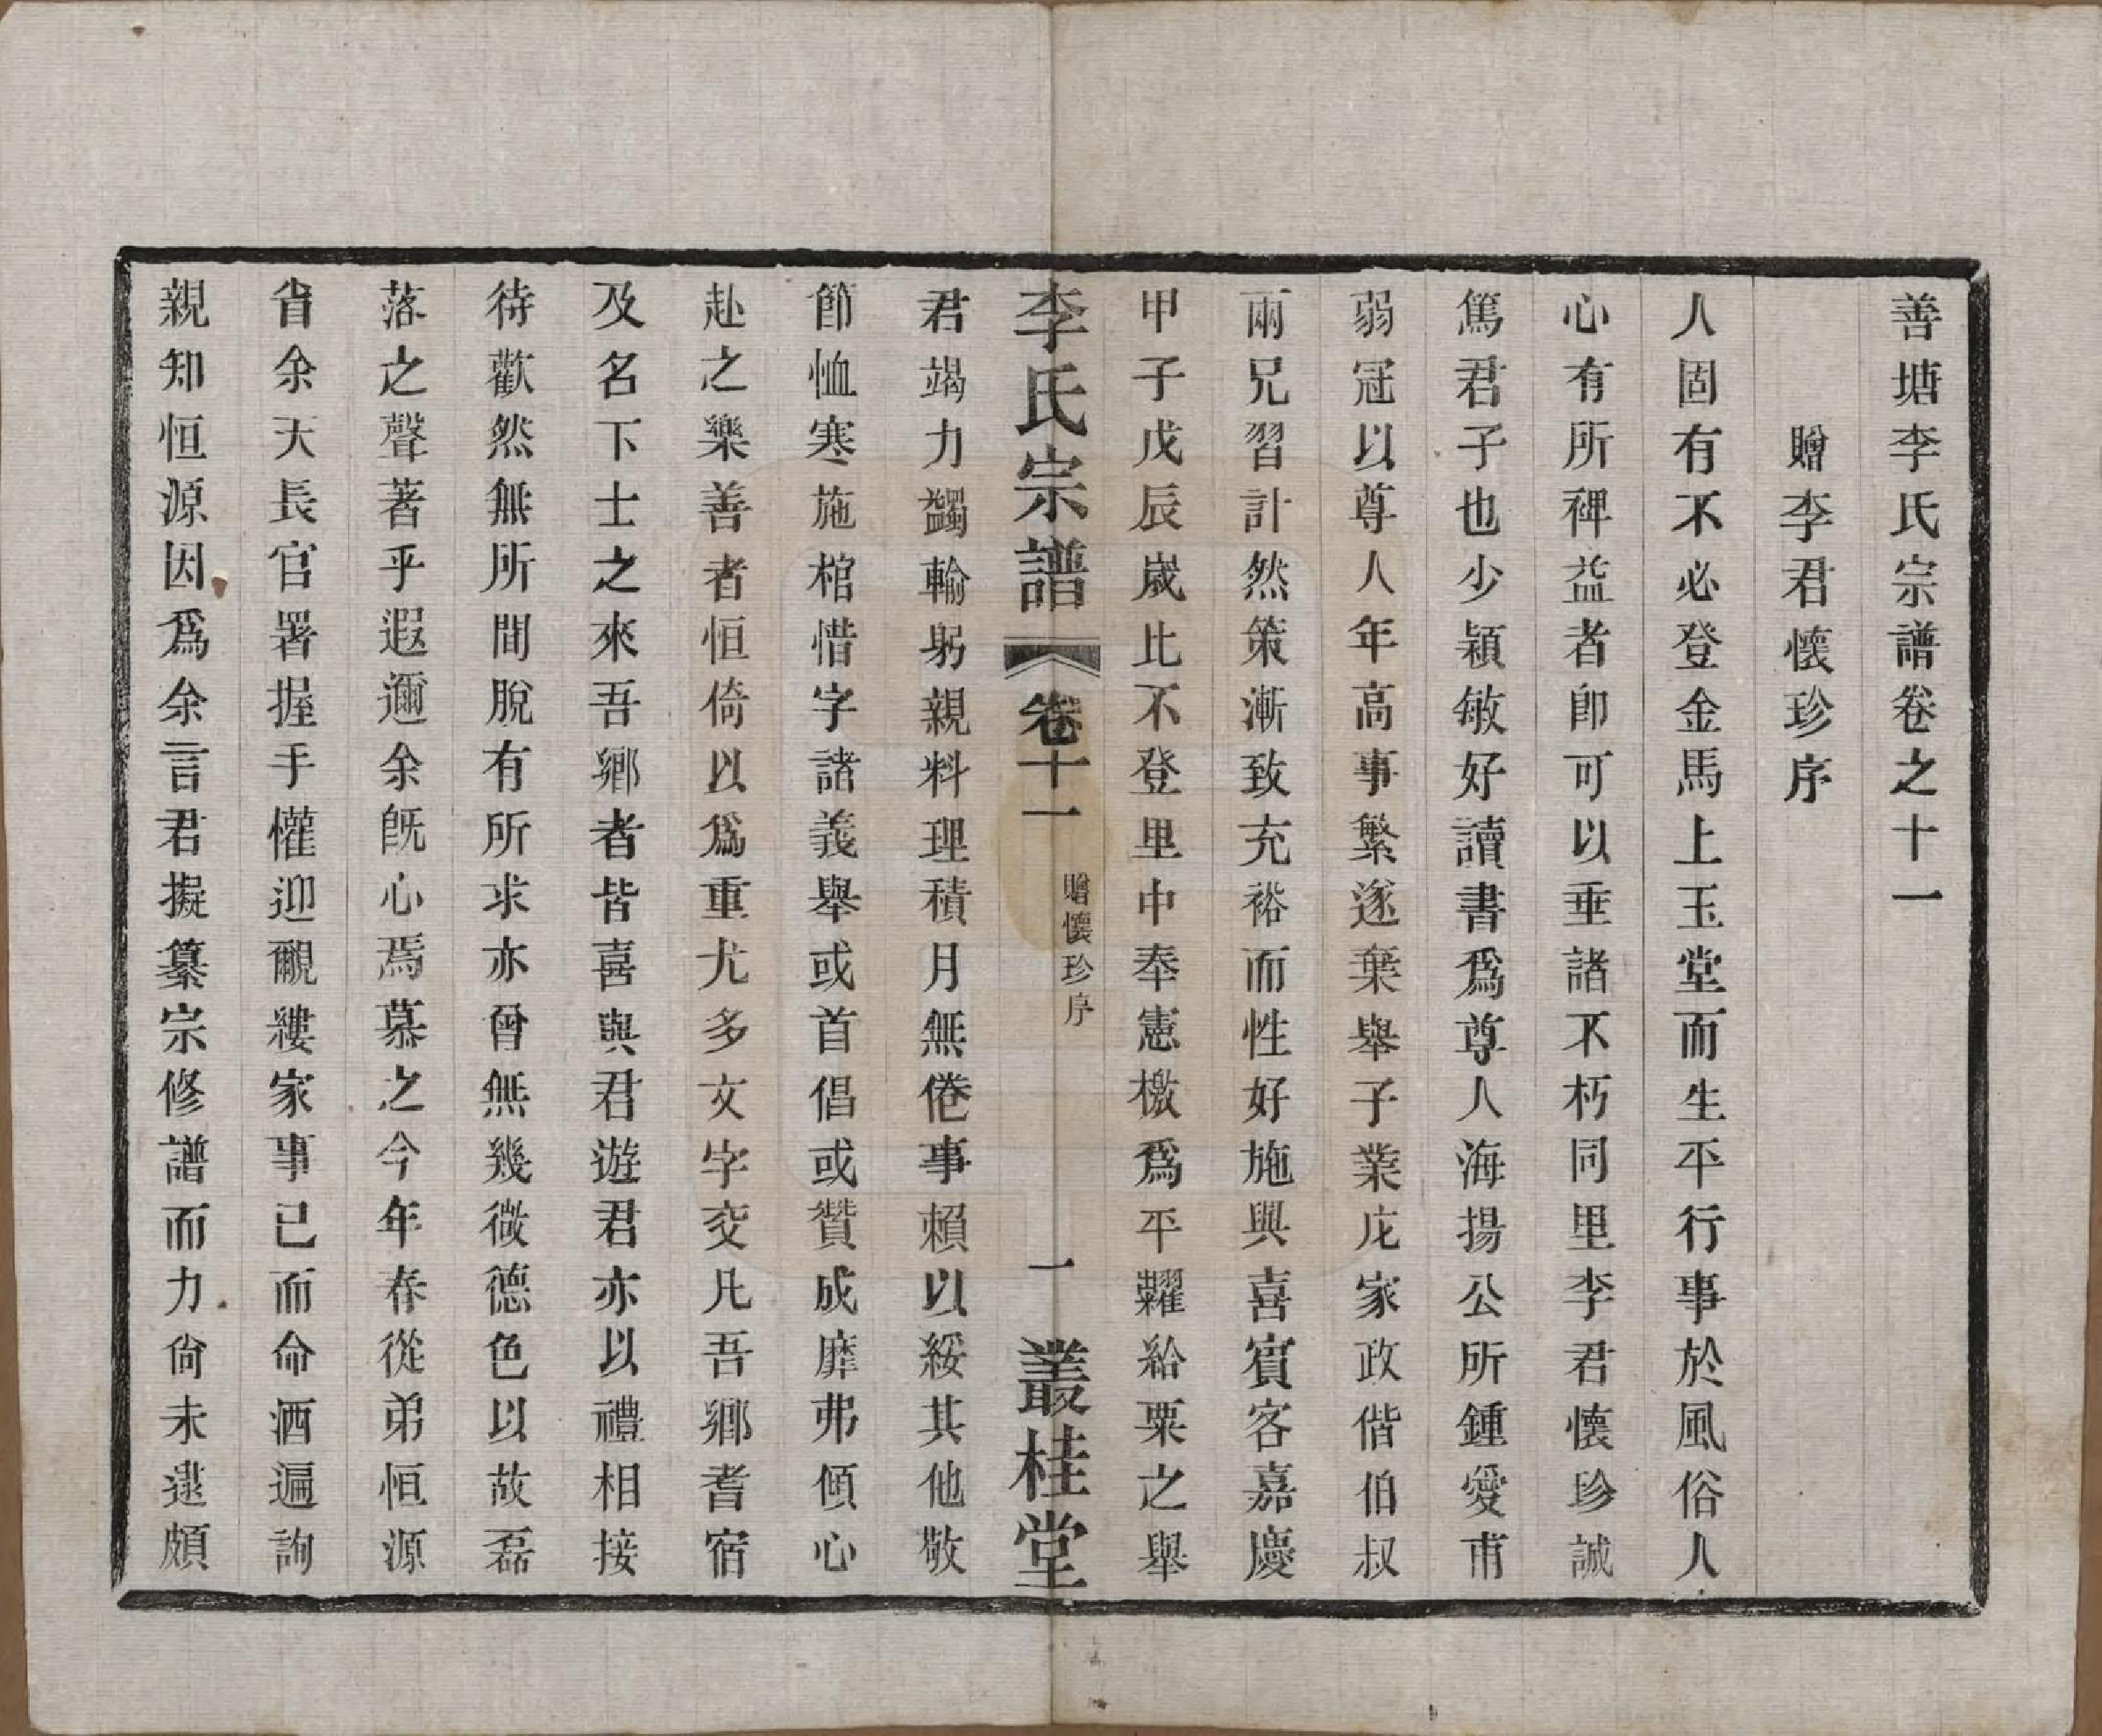 善塘李氏宗譜卷之十一
贈李君懷珍序
人固有不必登金馬上玉堂而生平行事於風俗人
心有所裨益者卽可以垂諸不朽同里李君懷珍誠
篤君子也少穎敏好讀書爲尊人海揚公所鍾愛甫
弱冠以尊人年高事繁遂棄舉子業庀家政偕伯叔
兩兄習計然策漸致充裕而性好施與喜賓客嘉慶
甲子戊辰歲比不登里中奉憲檄爲平糶給粟之舉
李氏宗譜
卷十一
贈懷珍序
一
叢桂堂
君竭力蠲輸躬親料理積月無倦事賴以綏其他敬
節恤寒施棺惜字諸義舉或首倡或贊成靡弗傾心
赴之樂善者恒倚以爲重尤多文字交凡吾鄉耆宿
及名下士之來吾鄉者皆喜與君遊君亦以禮相接
待歡然無所間脫有所求亦曾無幾微德色以故磊
落之聲著乎遐邇余旣心焉慕之今年春從弟恒源
省余天長官署握手懽迎覼縷家事已而命酒遍詢
親知恒源因爲余言君擬纂宗修譜而力尙未逮頗